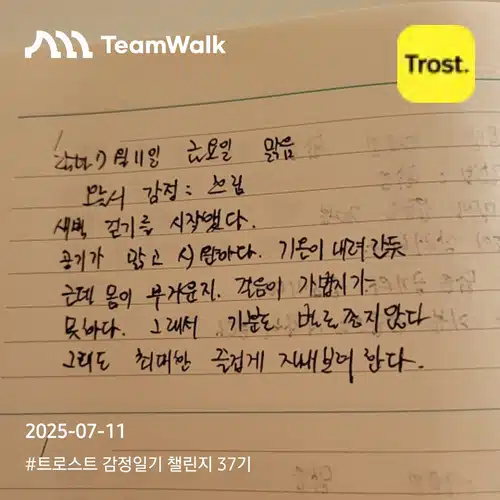 TeamWalk
Trost.
7월 11일 금요일 맑음
오늘의 감정 : 흐림
새벽 걷기를 시작했다.
공기가 맑고 시원하다. 기온이 내려간듯
근데 몸이 무거운지. 걸음이 가볍지가
못하다. 그래서 기분도 별로 좋지 않다
그래도 최대한 즐겁게 지내보려 한다.
2025-07-11
#트로스트 감정일기 챌린지 37기